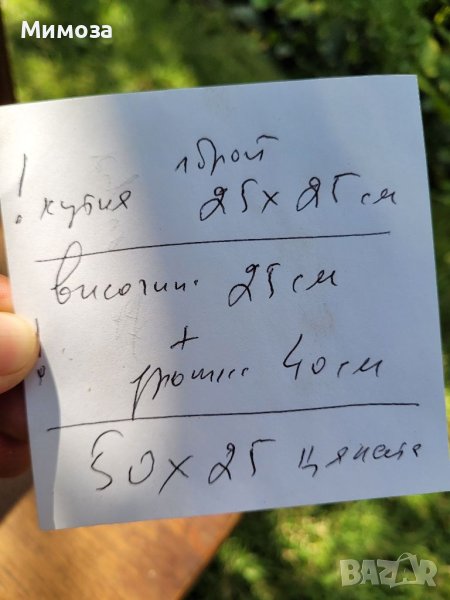 Мимоза
1 брой
! кутия 25 x 25 см
височин. 25 см
+
! 40 см
50 x 25 цялата
BAZAR